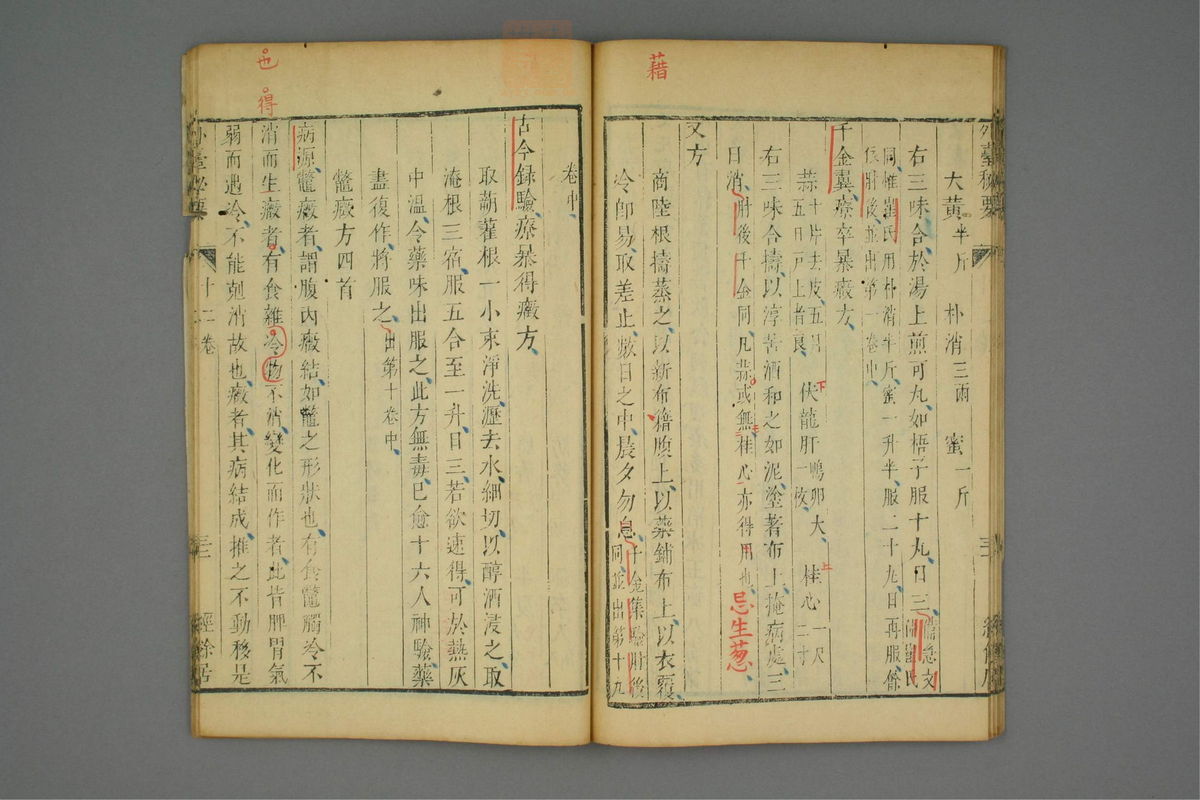 藉
外臺秘要
大黃半斤 朴消三兩 蜜一斤
右三味合於湯上煎可丸如梧子服十丸日三備急文
仲崔氏
同惟崔氏用朴消半斤蜜一升半服二十九日再服餘
依肘後並出第一卷中
千金翼療卒暴癥方
蒜十片去皮五月
五日戶上者良 伏龍肝鴨卵大
一枚 桂心一尺
二寸
下
上
右三味合擣以淳苦酒和之如泥塗著布上掩病處三
日消肘後千金同凡蒜或無桂心亦得用也忌生葱
又方
商陸根擣蒸之以新布籍腹上以藥鋪布上以衣覆
冷即易取差止數日之中晨夕勿息千金集驗肘後
同並出第十九
卷中
古今録驗療暴得癥方
取蒴藋根一小束淨洗瀝去水細切以醇酒浸之取
淹根三宿服五合至一升日三若欲速得可於熱灰
中溫令藥味出服之此方無毒已愈十六人神驗藥
盡復作將服之出第十卷中
鱉癥方四首
病源鱉癥者謂腹內癥結如鱉之形狀也有食鱉觸冷不
消而生癥者有食雜冷物不消變化而作者此皆脾胃氣
得
弱而遇冷不能剋消故也癥者其病結成推之不動移是
也
外臺秘要 十二卷 三 經餘居